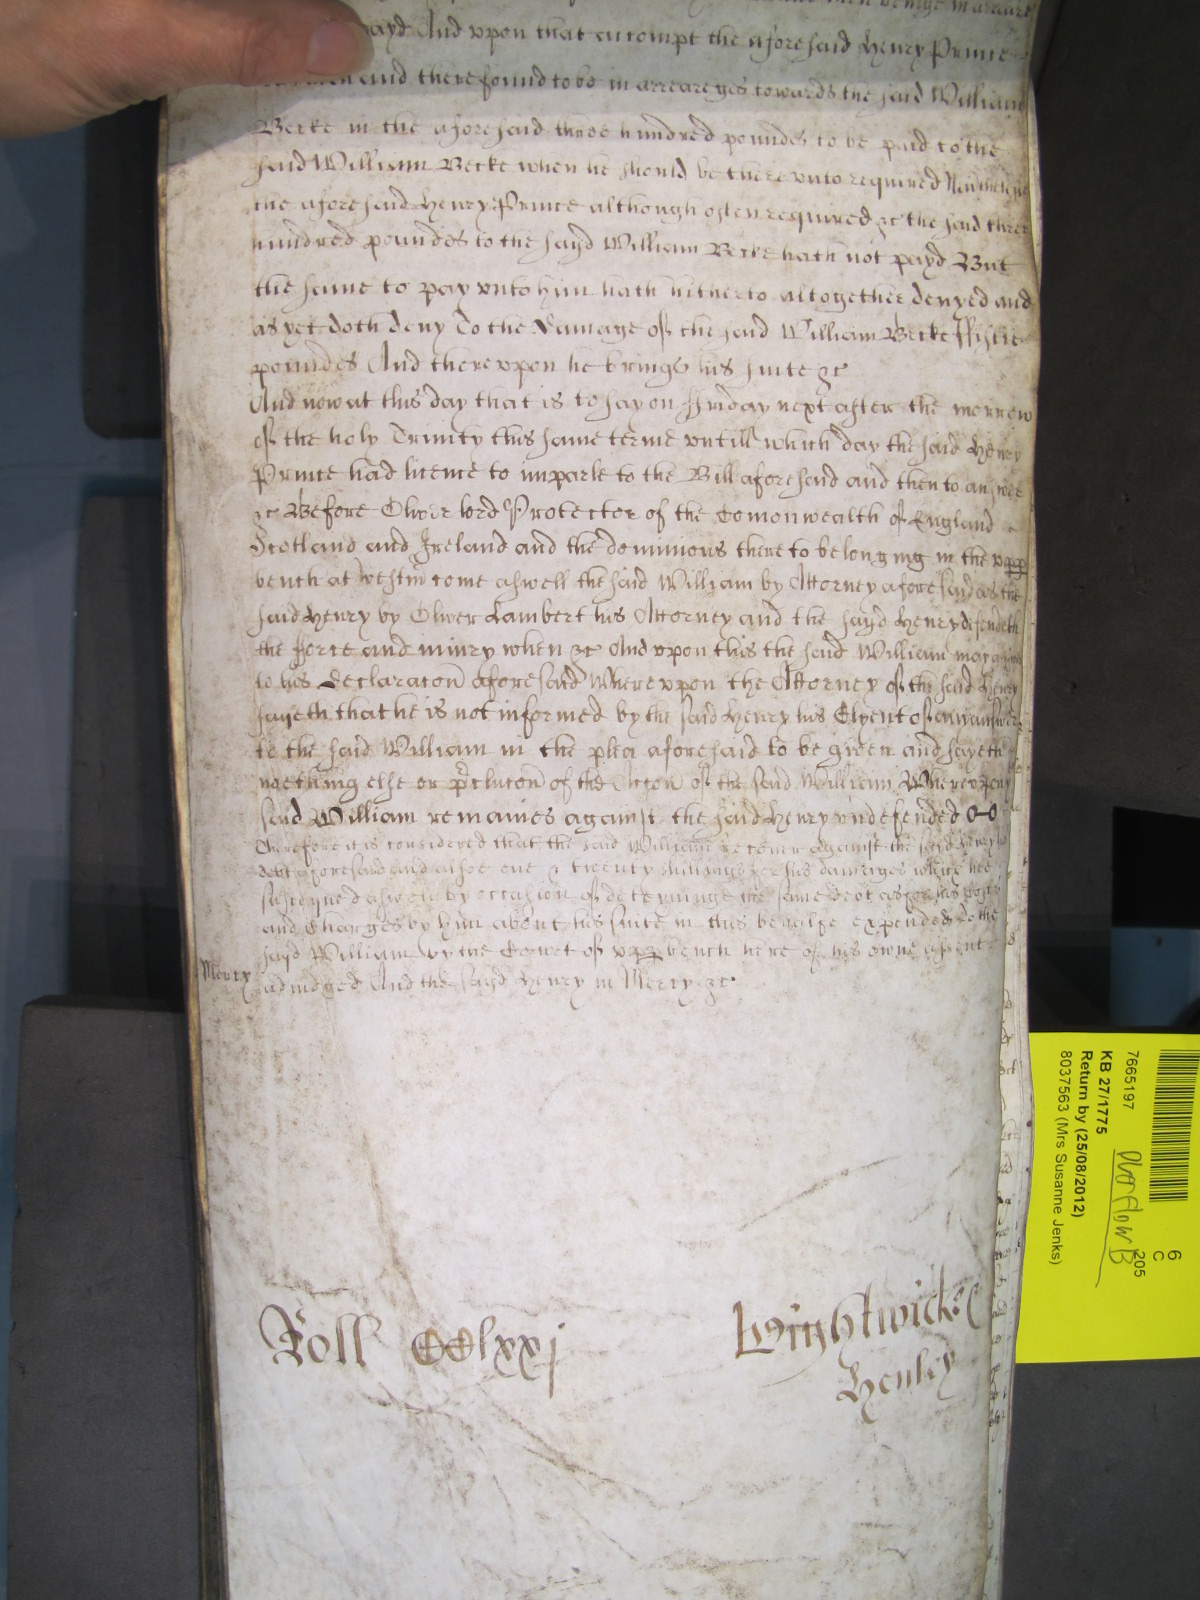 in arreare
payd And vpon that accompt the aforesaid Henry Prince
and there found to be in arrearages towards the said William
Becke in the aforesaid three hundred poundes to be paid to the
said William Becke when he should be there vnto required
the aforesaid Henry Prince although often required &c the said three
hundred poundes to the sayd William Becke hath not payd But
the same to pay vnto him hath hitherto altogether denyed and
as yet doth deny To the damage of the said William Becke ffiftie
poundes And therevpon he brings his suite &c
And now at this day that is to say on ffriday next after the morrow
of the holy Trinity this same terme vntill which day the said Henry
Prince had licence to imparle to the Bill aforesaid and then to answere
&c Before Oliver lord Protector of the Comonwealth of England
Scotland and Ireland and the dominions there to belonging in the vpp
bench at Westm come aswell the said William by Attorney aforesaid as the
said Henry by Oliver Lambert his Attorney and the sayd Henry defendeth
the force and iniury when &c And vpon this the said William
to his Declaracon aforesaid Where vpon the Attorney of the said Henry
sayeth that he is not informed by the said Henry his Clyent of any answere
to the said William in the plea aforesaid to be given and sayeth
nothing else or pclusion of the Accon of the said William Wherevpon
said William remaines against the said Henry vndefended
Therefore it is considered that the said William recover against the said Henry his
debt aforesaid and alsoe one & twenty shillings for his damages which hee
susteyned aswell by occasion of deteyninge the same debt as for his Costs
and Charges by him about his suite in this behalfe expended to the
sayd William by the Court of vpp bench here of his owne assent
Mercy
adiudged And the sayd Henry in Mercy &c
Roll CClxxj
Lightwicke
Henley
7665197
KB 27/1775
Return by (25/08/2012)
8037563 (Mrs Susanne Jenks)
Overflow B
6
C
205